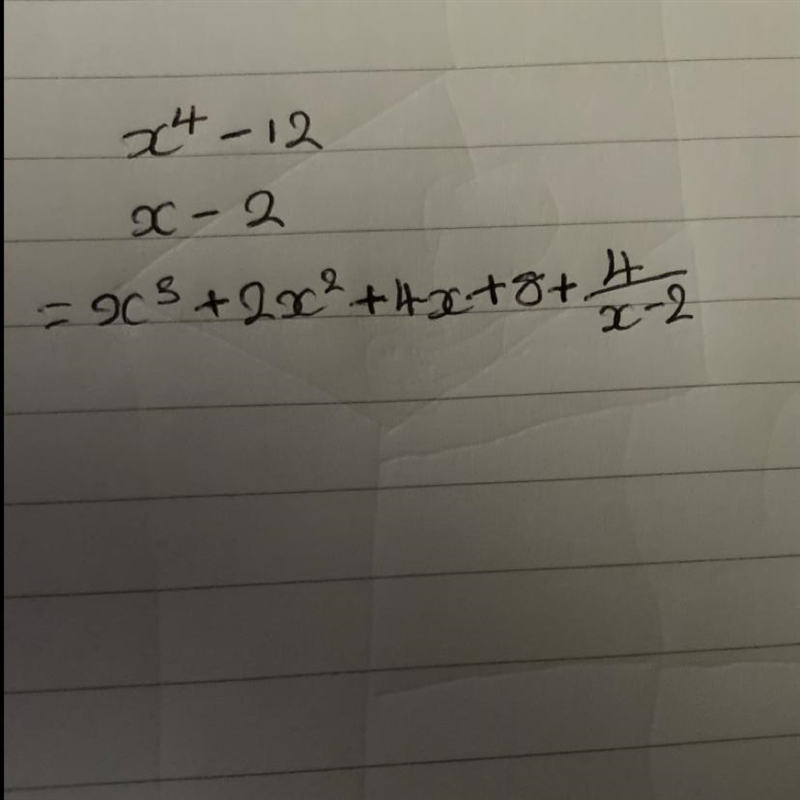 x⁴ - 12
x - 2
= x³ + 2x² + 4x + 8 + 4/(x-2)